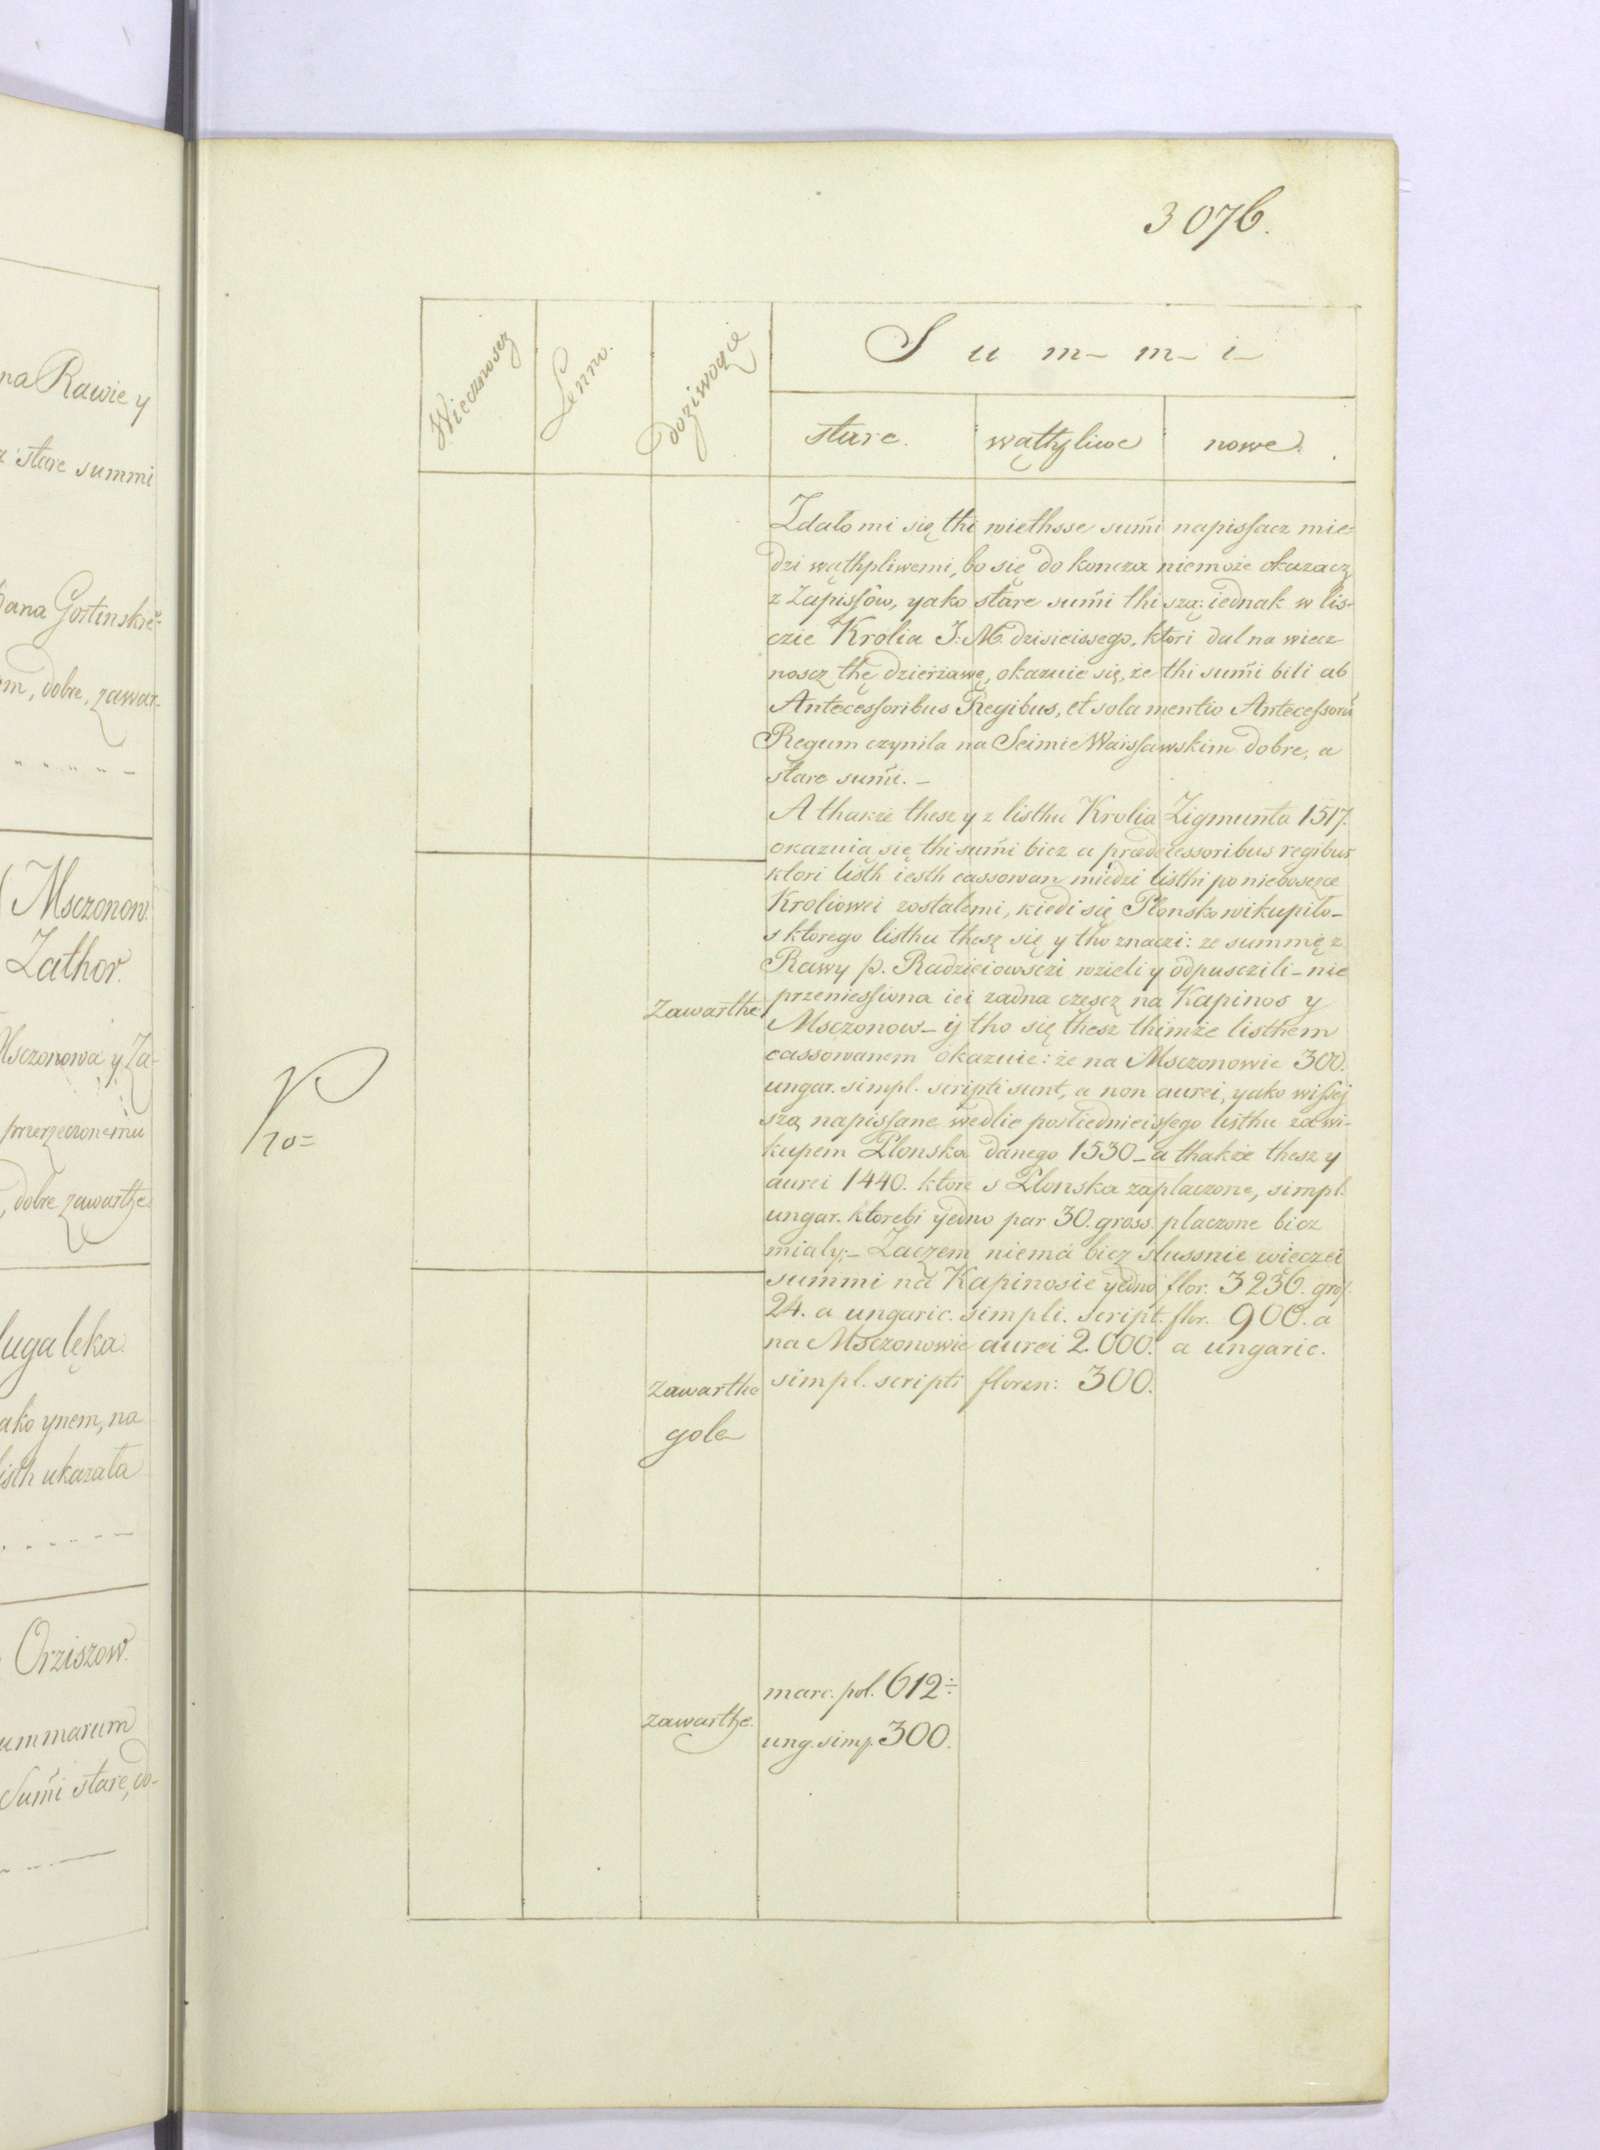 3076.
na Rawie y
stare summi
Pana Gostinskie-
em, dobre, zawar-
Msczonow.
Zathor.
Msczonowa y Za-
przerzeczonemu
, dobre zawarthe
ługa lęka.
ako ynem, na
listh ukazała
Orziszow.
summarum
Sumi stare, do-
Wiecznoscz
Lenno.
Doziwocie
Summi
stare.
wąthpliwe
nowe.
Zdało mi się thi wiethsse sumi napisfacz mie-
dzi wąthpliwemi, bo się do koncza niemoże okazacz
z Zapisfow, yako stare sumi thi szą: iednak w lis-
czie Krolia J: M. dzisieissego, ktori dal na wiecz
noscz thę dzierżawę, okazuie się, że thi sumi bili ab
Antecesforibus Regibus, et sola mentio Antecesforu
Regum czynila na Seimie Warsfawskim dobre, a
stare sumi. –
A thakże thesz y z listhu Krolia Zigmunta 1517.
okazuia się thi sumi bicz a prædecessoribus regibus
ktori listh iesth cassowan miedzi listhi po nieboscze
Kroliowei zostalemi, kiedi się Plonsko wikupiło –
s ktorego listhu thesz się y tho znaczi: ze summę z
Rawy p. Radzieiowsczi wzieli y odpusczili – nie
przeniesfiona iei zadna częscz na Kapinos y
Msczonow – ij tho się thesz thimże listhem
cassowanem okazuie: że na Msczonowie 300.
ungar. simpl. scripti sunt, a non aurei, yako wisfej
szą napisfane wedlie posliednieisfego listhu za wi-
kupem Plonska danego 1530 – a thakże thesz y
aurei 1440. ktore s Plonska zaplaczone, simpl.
ungar. ktorebi yedno par 30. gross. placzone bicz
mialy; – Zaczem niema bicz slussnie więczei
summi na Kapinosie yedno flor. 3236. grof.
24. a ungaric. simpli. script. flor. 900. a
na Msczonowie aurei 2.000. a ungaric.
simpl. scripti floren: 300.
zawarthe
zawarthe
gole
zawarthe.
marc. pol. 612 ÷
ung. simp. 300.